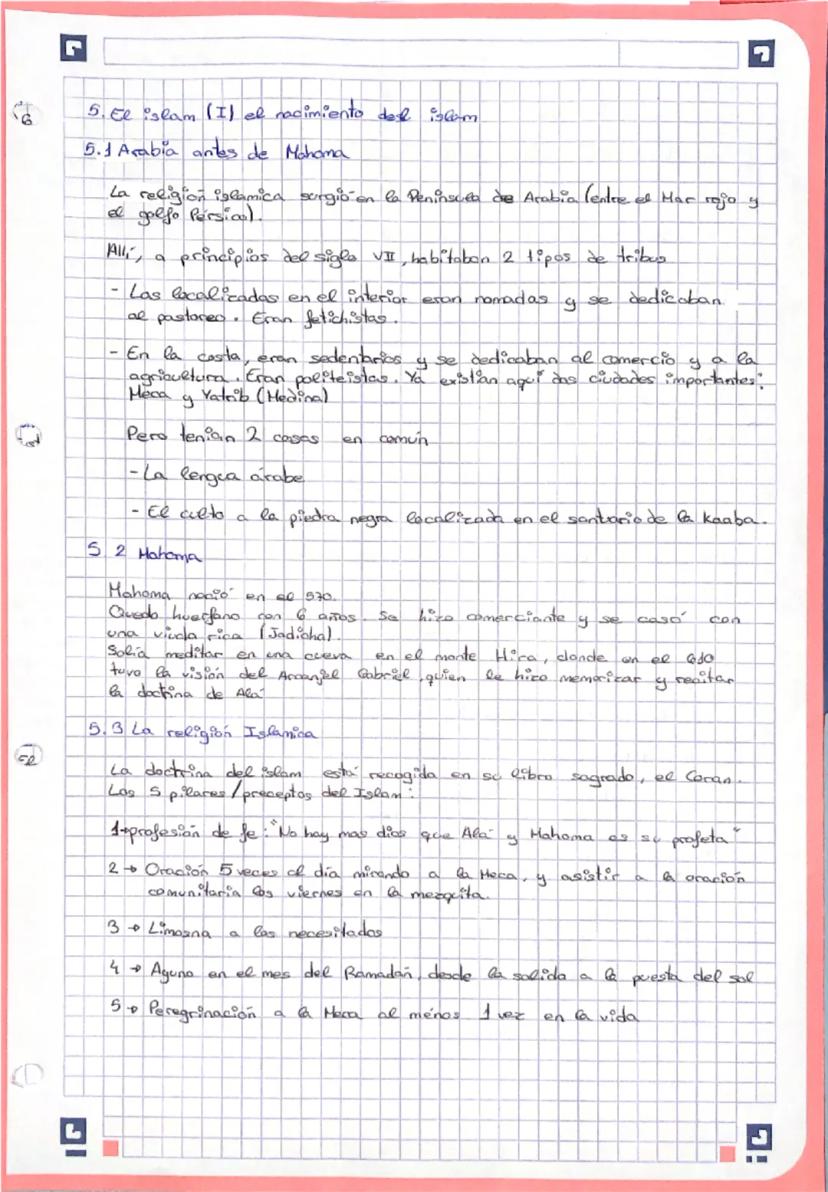 5. El islam (I) el nacimiento del islam
5.1 Arabia antes de Mahoma
La religión islamica surgió en la Península de Arabia (entre el Mar rojo y
el golfo Pérsico).
Allí, a principios del siglo VII, habitaban 2 tipos de tribus
- Las localizadas en el interior eran nomadas y se dedicaban
al pastoreo. Eran fetichistas.
- En la costa, eran sedentarios y se dedicaban al comercio y a la
agricultura. Eran politeistas. Ya existían aquí dos ciudades importantes:
Meca y Yatrib (Medina)
Pero tenían 2 cosas en común
- La lengua árabe
- El culto a la piedra negra localizada en el santuario de la Kaaba.
5 2 Mahoma
Mahoma nació en el 570.
Quedo huerfano con 6 años. Se hizo comerciante y se casó con
una viuda rica (Jadicha).
Solía meditar en una cueva en el monte Hira, donde en el 610
tuvo la visión del Arcangel Gabriel, quien le hizo memorizar y recitar
la doctrina de Alá
5.3 La religión Islamica
La doctrina del islam está recogida en su libro sagrado, el Coran.
Los 5 pilares/preceptos del Islam:
1→profesión de fe: "No hay mas dios que Alá y Mahoma es su profeta"
2 → Oración 5 veces al día mirando a la Meca, y asistir a la oración
comunitaria los viernes en la mezquita.
3 → Limosna a los necesitados
4 → Ayuno en el mes del Ramadán, desde la salida a la puesta del sol
5 → Peregrinación a la Meca al ménos 1 vez en la vida